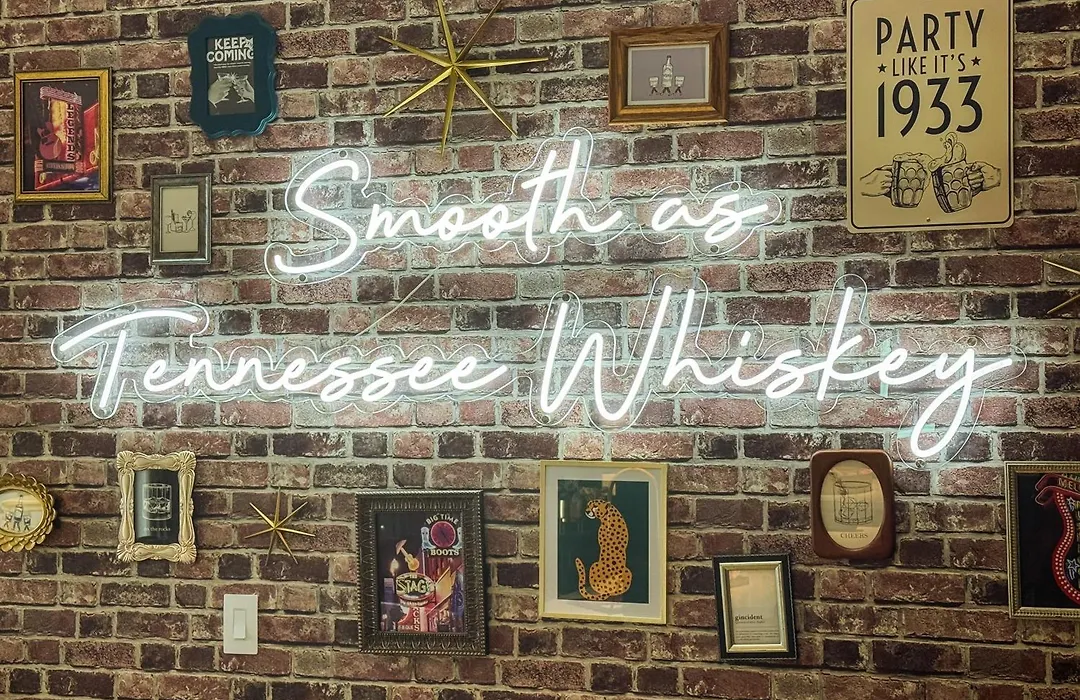 KEEP
COMING
LEGENDS
PARTY
LIKE IT'S
1933
Smooth as
Tennessee Whiskey
on the rocks
BIG TIME
BOOTS
STAGE
gincident
CHEERS